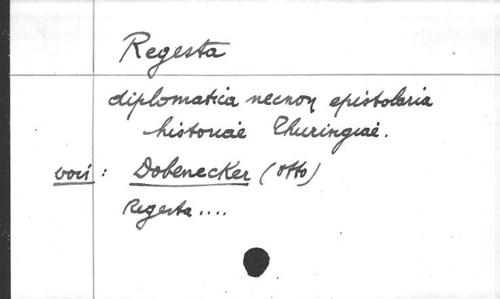 Regesta
diplomatica necnon epistolaria
historiae Thuringiae.
voir : Dobenecker (Otto)
Regesta ....